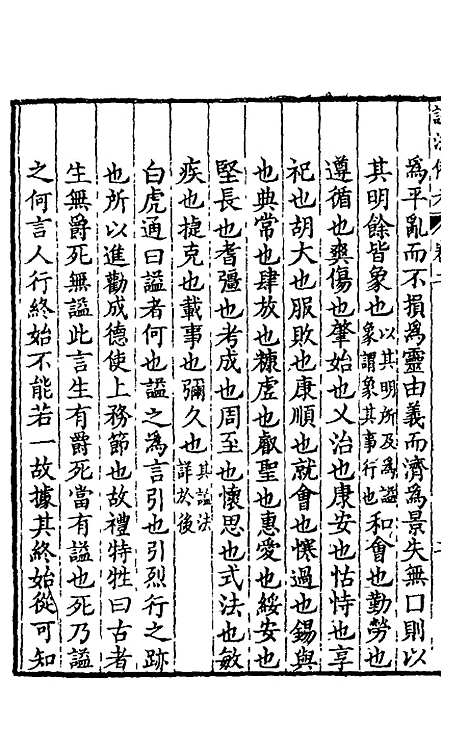 為平亂而不損為靈由義而濟為景失無口則以
其明餘皆象也以其明所及為諡象謂象其事行也和會也勤勞也
遵循也爽傷也肇始也乂治也康安也怙恃也享
祀也胡大也服敗也康順也就會也㦪過也錫與
也典常也肆放也糠虛也叡聖也惠愛也綏安也
堅長也耆彊也考成也周至也懷思也式法也敏
疾也捷克也載事也彌久也其諡法詳於後
白虎通曰諡者何也諡之為言引也引烈行之跡
也所以進勸成德使上務節也故禮特牲曰古者
生無爵死無諡此言生有爵死當有諡也死乃諡
之何言人行終始不能若一故據其終始從可知